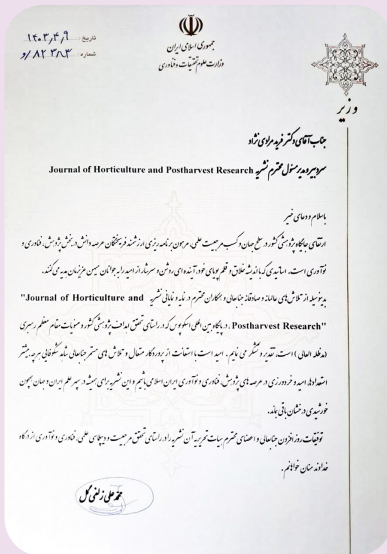 جمهوری اسلامی ایران
وزارت علوم تحقیقات و فناوری
تاریخ: ۱۴۰۳,۴,۹
شماره:
وزیر
جناب آقای دکتر فرید مرادی نژاد
سردبیر و مدیر مسئول محترم نشریه Journal of Horticulture and Postharvest Research
با سلام و دعای خیر
ارتقای جایگاه پژوهشی کشور در سطح جهان و کسب مرجعیت علمی، مرهون برنامه ریزی ارزشمند فرهیختگان عرصه دانش در بخش پژوهش، فناوری و
نوآوری است. اساتیدی که با اندیشه خلاق و قلم پویای خود، آینده ای روشن و سرشار از امید را به جوانان میهن عزیزمان هدیه می کنند.
بدینوسیله از تلاش های عالمانه و صادقانه جنابعالی و همکاران محترم در نمایه نشریه "Journal of Horticulture and
Postharvest Research" در پایگاه بین المللی اسکوپوس که در راستای تحقق اهداف پژوهشی کشور و منویات مقام معظم رهبری
(مدظله العالی) است، تقدیر و تشکر می نمایم. امید است با استعانت از پروردگار متعال و تلاش های مستمر جنابعالی شاهد شکوفایی هر چه بیشتر
استعدادها، امید و خردورزی در عرصه های پژوهش، فناوری و نوآوری ایران اسلامی باشیم و این نشریه برای همیشه در سپهر علم ایران و جهان همچون
خورشیدی درخشان باقی بماند.
توفیقات روزافزون جنابعالی و اعضای محترم هیات تحریریه آن نشریه را در راستای تحقق مرجعیت و دیپلماسی علمی، فناوری و نوآوری از درگاه
خداوند منان خواهانم.
محمد علی زلفی گل